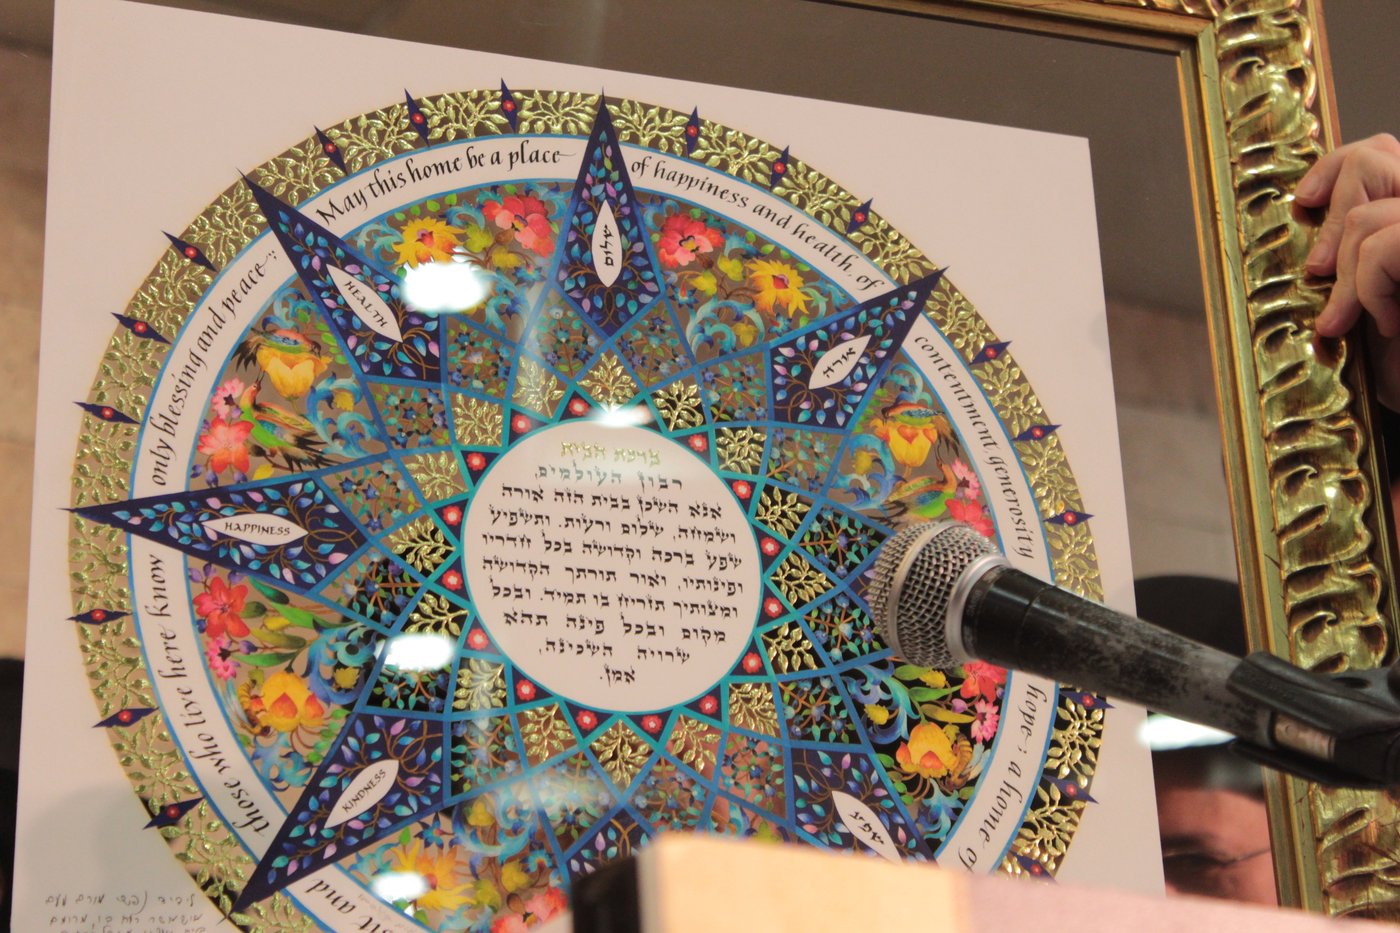 May this home be a place
of happiness and health, of
contentment, generosity
hope; a home of
those who live here know
only blessing and peace
שלום
אורה
HEALTH
HAPPINESS
KINDNESS
ברכת הבית
רבון העולמים
אנא השכן בבית הזה אורה
ושמחה, שלום ורעות. ותשפיע
שפע ברכה וקדושה בכל חדריו
ופינותיו, ואור תורתך הקדושה
ומצותיך תזריח בו תמיד. ובכל
מקום ובכל פינה תהא
שרויה השכינה,
אמן.